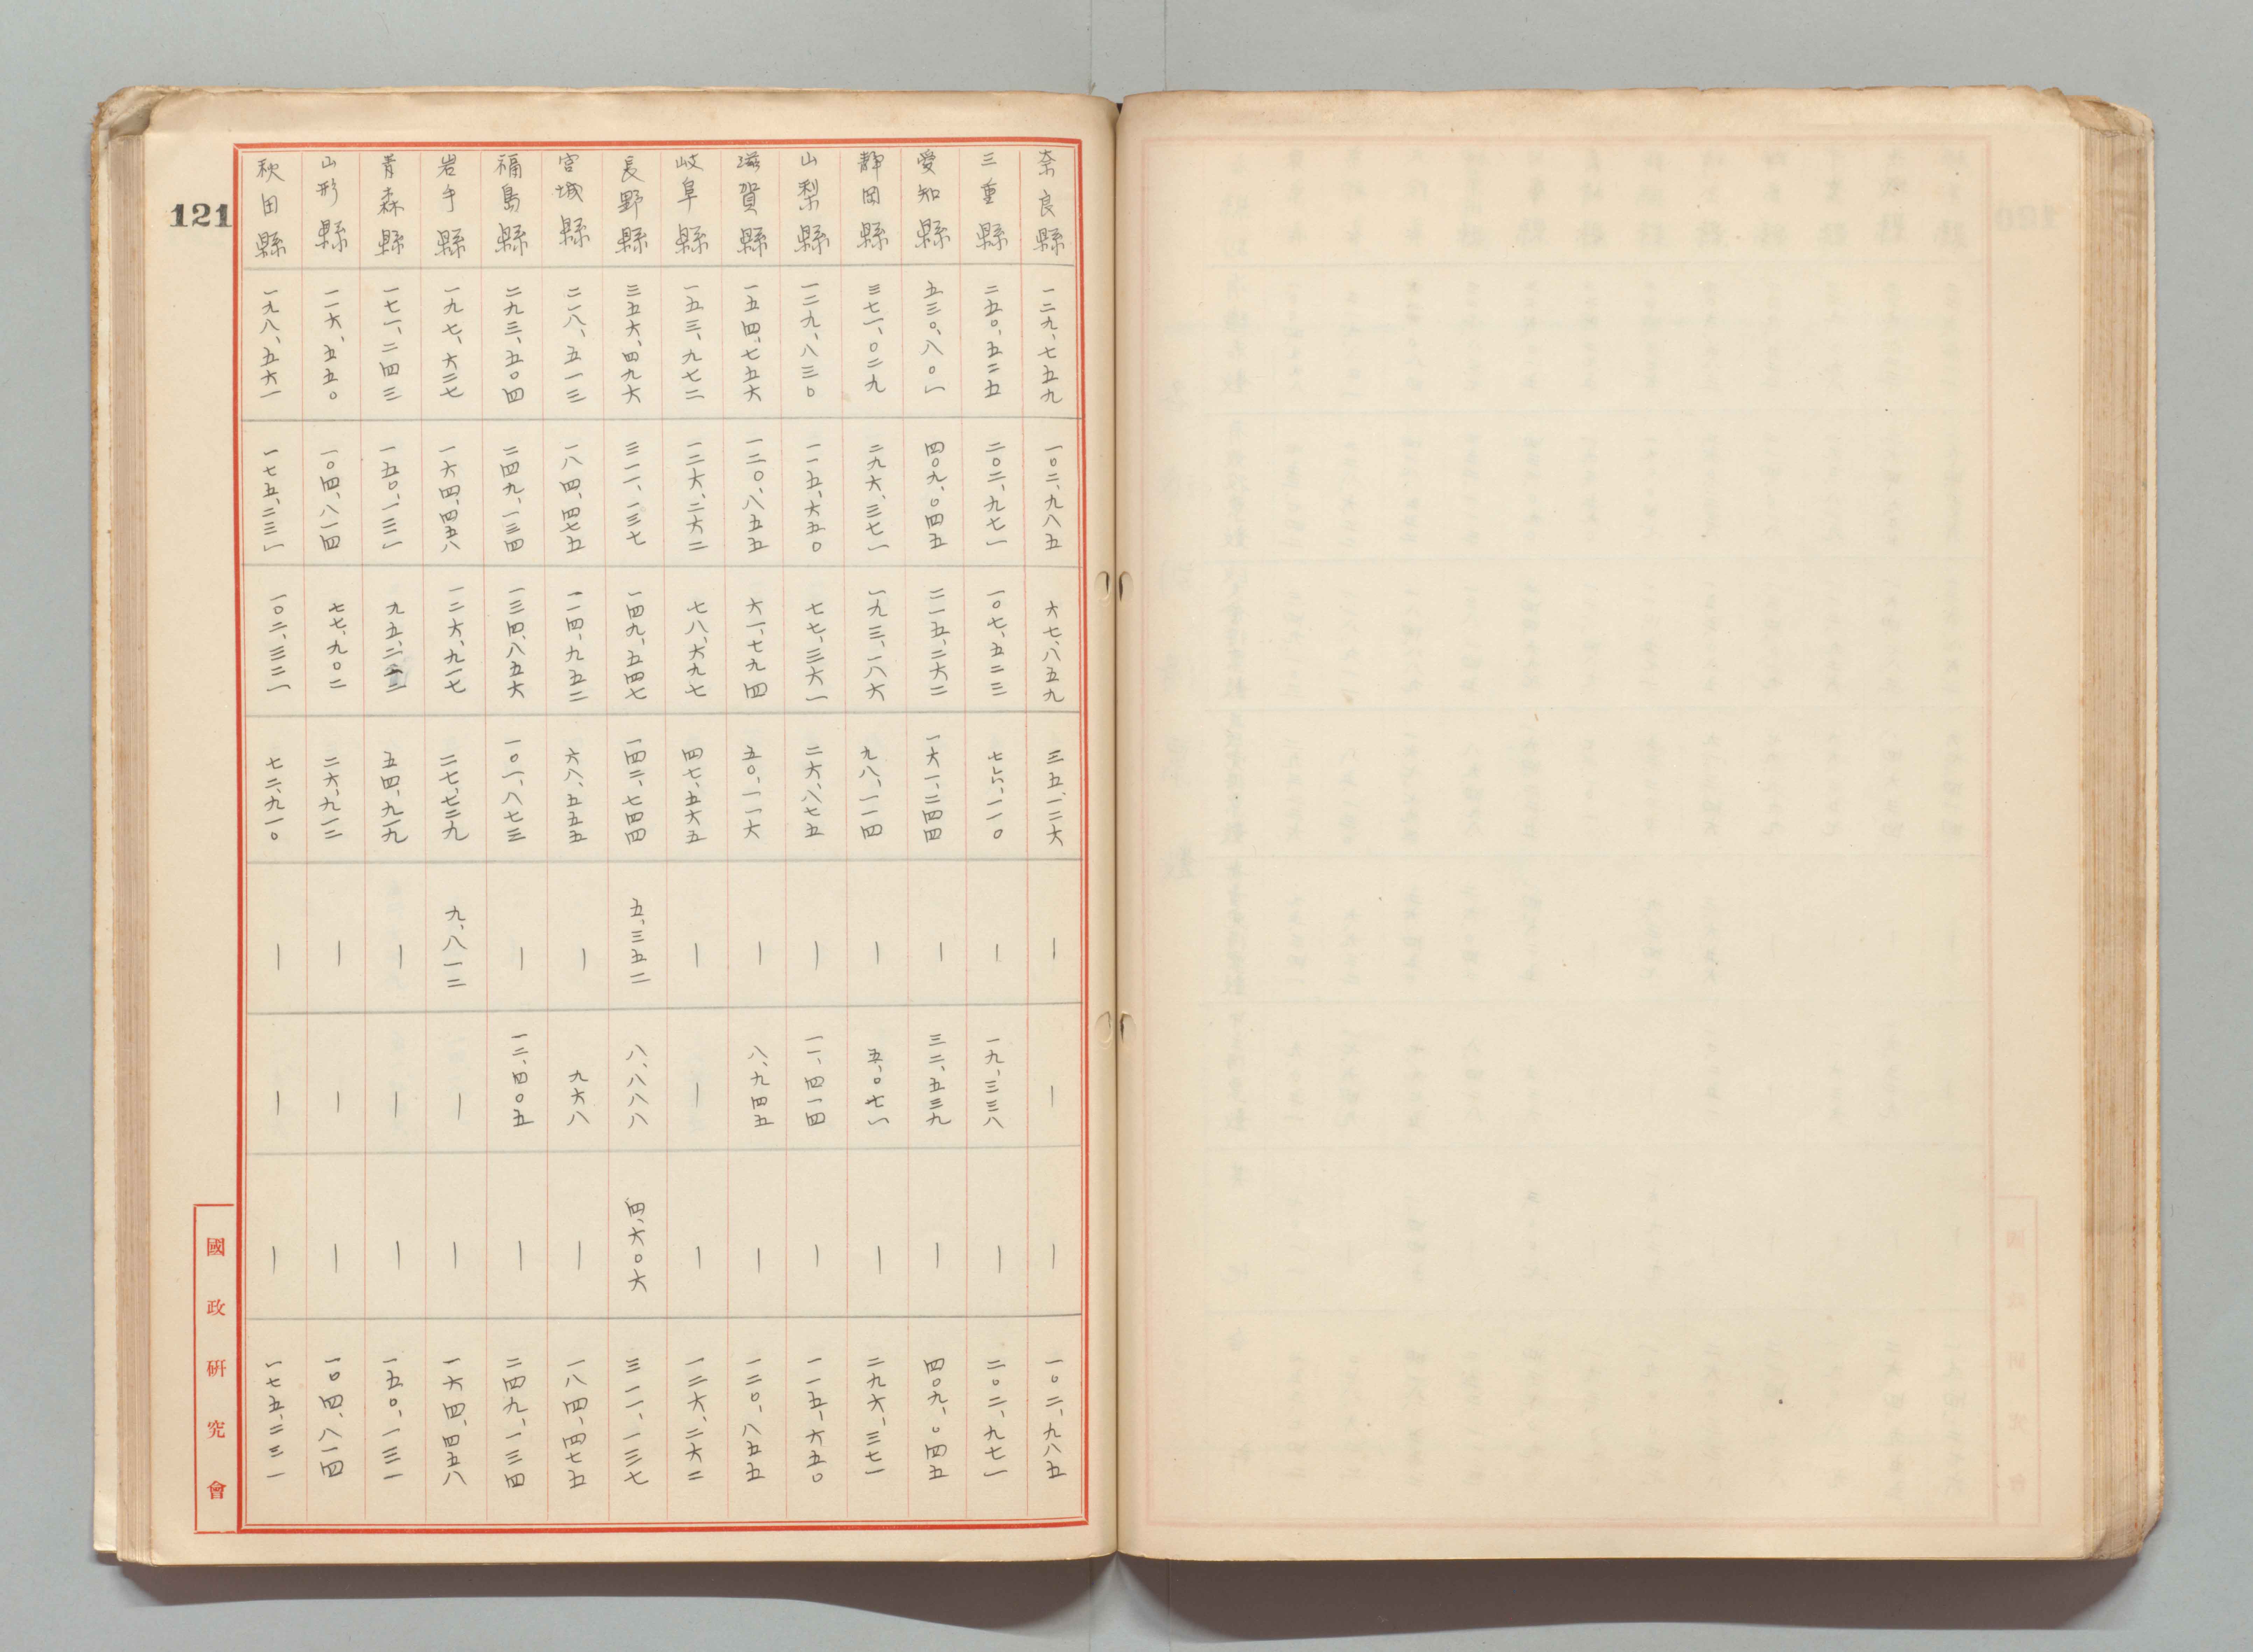 奈良縣 一二九、七五九 一〇二、九八五 六七、八五九 三五、一二六 — — — 一〇二、九八五
三重縣 二五〇、五二五 二〇二、九七一 一〇七、五二三 七六、一一〇 — 一九、三三八 — 二〇二、九七一
愛知縣 五三〇、八〇一 四〇九、〇四五 二一五、二六二 一六一、二四四 — 三二、五三九 — 四〇九、〇四五
靜岡縣 三七一、〇二九 二九六、三七一 一九三、一八六 九八、一一四 — 五、〇七一 — 二九六、三七一
山梨縣 一二九、八三〇 一一五、六五〇 七七、三六一 二六、八七五 — 一一、四一四 — 一一五、六五〇
滋賀縣 一五四、七五六 一二〇、八五五 六一、七九四 五〇、一一六 — 八、九四五 — 一二〇、八五五
岐阜縣 一五三、九七二 一二六、二六二 七八、六九七 四七、五六五 — — — 一二六、二六二
長野縣 三五六、四九六 三一一、一三七 一四九、五四七 一四二、七四四 五、三五二 八、八八八 四、六〇六 三一一、一三七
宮城縣 二一八、五一三 一八四、四七五 一一四、九五二 六八、五五五 — 九六八 — 一八四、四七五
福島縣 二九三、五〇四 二四九、一三四 一三四、八五六 一〇一、八七三 — 一二、四〇五 — 二四九、一三四
岩手縣 一九七、六二七 一六四、四五八 一二六、九一七 二七、七二九 九、八一二 — — 一六四、四五八
青森縣 一七一、二四三 一五〇、一三一 九五、二一二 五四、九一九 — — — 一五〇、一三一
山形縣 一一六、五五〇 一〇四、八一四 七七、九〇二 二六、九一二 — — — 一〇四、八一四
秋田縣 一九八、五六一 一七五、二三一 一〇二、三二一 七二、九一〇 — — — 一七五、二三一
121
國政研究會